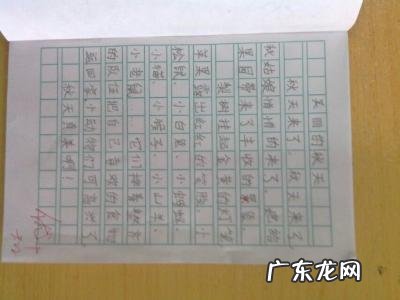 美丽的秋天
秋天来了，秋天来了，
秋姑娘悄悄的来了。她给
果园带来了丰收的果实。
梨树挂起金黄的灯笼
苹果露出红红的笑脸。小
松鼠、小白兔、小蚂蚁、
小猫、小猴子、小山羊、
小老鼠……它们排着整齐
的队伍把自己喜欢的食物
运回家小动物们可高兴了。
秋天真美啊！
广东龙网